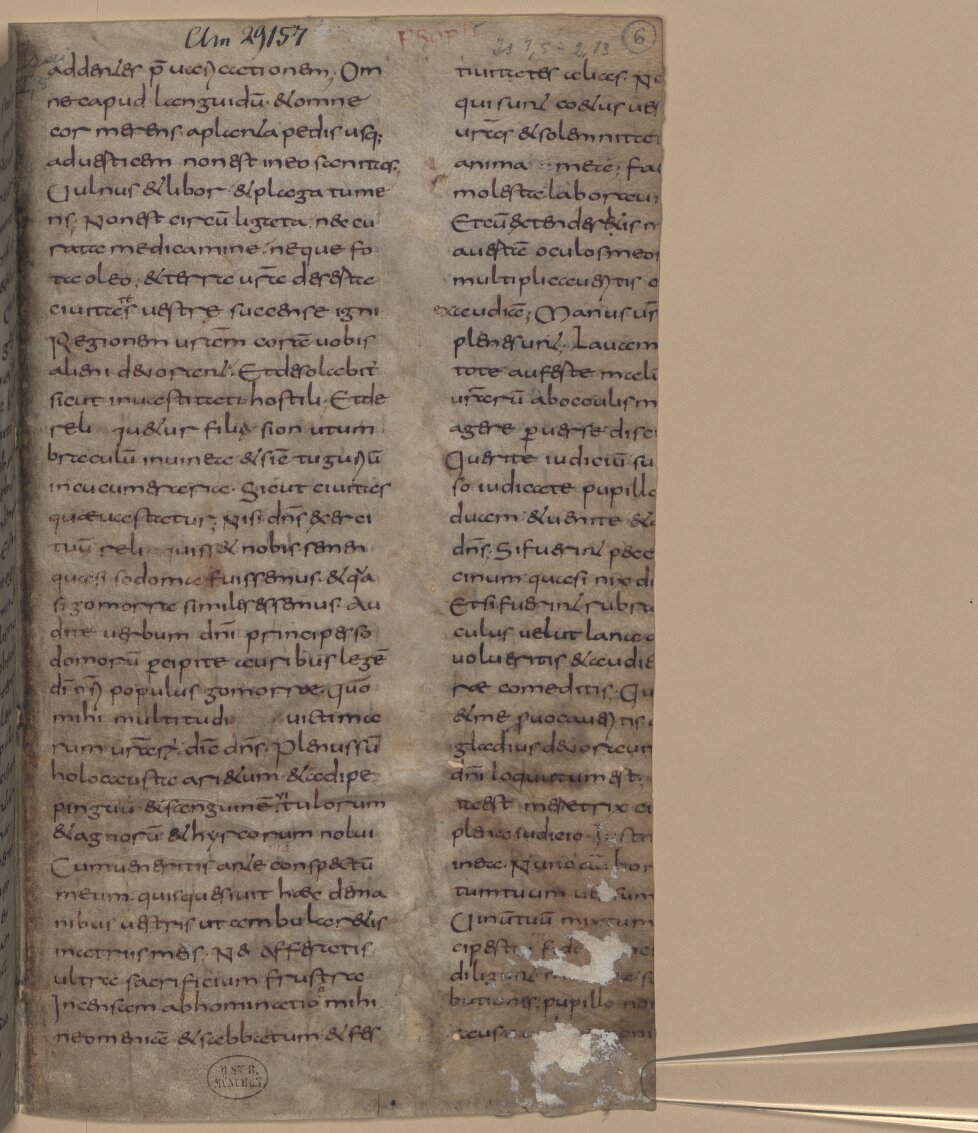 Clm 29157
6
addentes p̄uaricationem; Om
ne capud languidū. & omne
cor merens. a planta pedis usq;
ad uerticem non est in eo sanitas;
Uulnus & libor & plaga tume
ns; Non est circū ligata. nec cu
rata medicamine. neque fo
ta oleo; & terra ur̄a deserta
ciuitates uestrę succense igni
Regionem ur̄am corā uobis
alieni deuorant. Et desolabit
sicut in uastitate hostili; Et de
reli quetur filia sion ut um
braculū in uinea & sic̄ tuguriū
in cucumerario. Sicut ciuitas
quæ uastatur; Nisi dn̄s exerci
tuū reli quiss& nobis semen
quasi sodoma fuissemus. & q̄a
si gomorra similes essemus. Au
dite uerbum dn̄i principes so
domorū percipite auribus legē
dī nr̄i populus gomorræ; Quo
mihi multitudi uictima
rum ur̄arū. dic̄ dn̄s. Plenus sū
holocausta ari&um & adipe
pinguiū & sanguinē uitulorum
& agnorū & hyrcorum nolui
Cum ueneritis ante conspectū
meum. quis quesiuit hæc de ma
nibus uestris ut ambularetis
in atriis meis; Ne afferatis
ultra sacrificium frustra
Incensam abhominatio mihi
neomenia & sabbatum & fes
tiuitates alias. No
qui sunt co&us ues
ur̄as & solemnitat
anima mea; Fa
molesta laboraui
Et cū extenderitis m
auertā oculos meos
multiplicaueritis o
exaudiā; Manus ur̄
plene sunt; Lauam
tote auferte mali
ur̄arū ab oculis m
agere peruerse disc
Querite iudiciū su
so iudicate pupillo
duam. & uenite &
dn̄s; Si fuerint pecc
cinum. quasi nix d
Et si fuerint rubra
culus uelut lana
uolueritis & audie
ræ comeditis. Qu
& me p̄uocaueritis
gladius deuorauit
dn̄i loquutum est.
ta est meretrix ci
plena iudicio. Iusti
in ea. Nunc aū hom
tum tuum uersum
Uinū tuū mixtum
cipes
diligunt
butiones; pupillo non